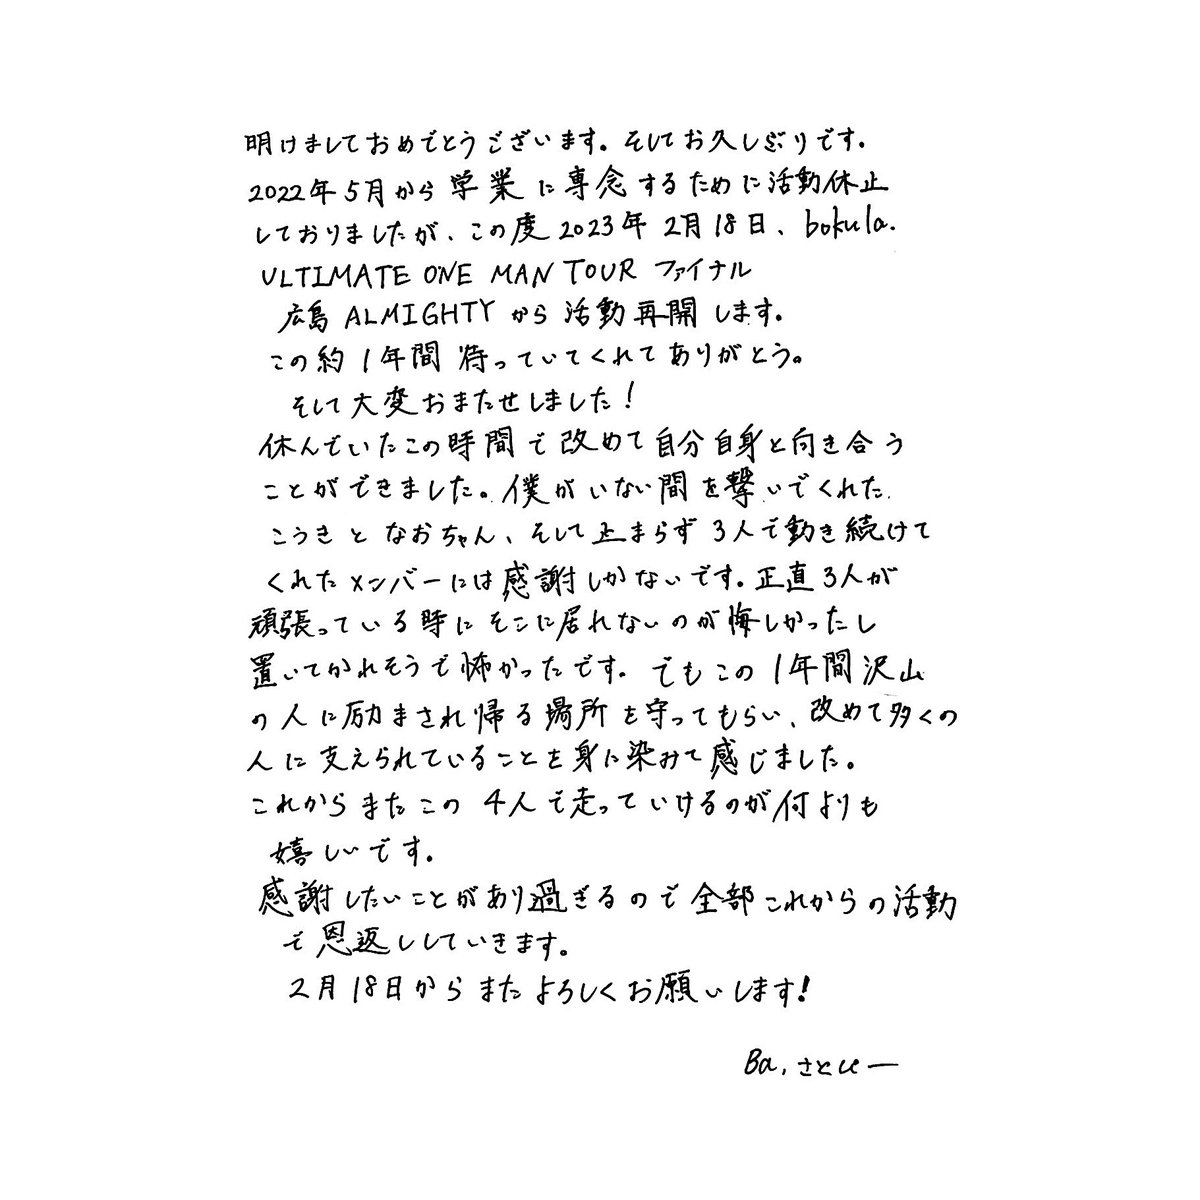 明けましておめでとうございます。そしてお久しぶりです。
2022年5月から学業に専念するために活動休止
しておりましたが、この度2023年2月18日、bokula.
ULTIMATE ONE MAN TOUR ファイナル
広島 ALMIGHTYから活動再開します。
この約1年間待っていてくれてありがとう。
そして大変おまたせしました!
休んでいたこの時間で改めて自分自身と向き合う
ことができました。僕がいない間を繋いでくれた
こうきとなおちゃん、そして止まらず3人で動き続けて
くれたメンバーには感謝しかないです。正直3人が
頑張っている時にそこに居れないのが悔しかったし
置いてかれそうで怖かったです。でもこの1年間沢山
の人に励まされ帰る場所を守ってもらい、改めて多くの
人に支えられていることを身に染みて感じました。
これからまたこの4人で走っていけるのが何よりも
嬉しいです。
感謝したいことがあり過ぎるので全部これからの活動
で恩返ししていきます。
2月18日からまたよろしくお願いします!
Ba. さとぴー